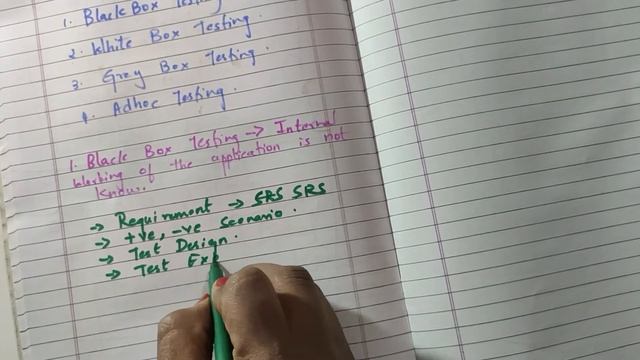 1. Black Box Testing
2. White Box Testing
3. Grey Box Testing.
4. Adhoc Testing.
1. Black Box Testing → Internal
Working of the application is not
Known.
→ Requirement → SRS SRS
→ +ve, -ve Scenario.
→ Test Design.
→ Test Ex